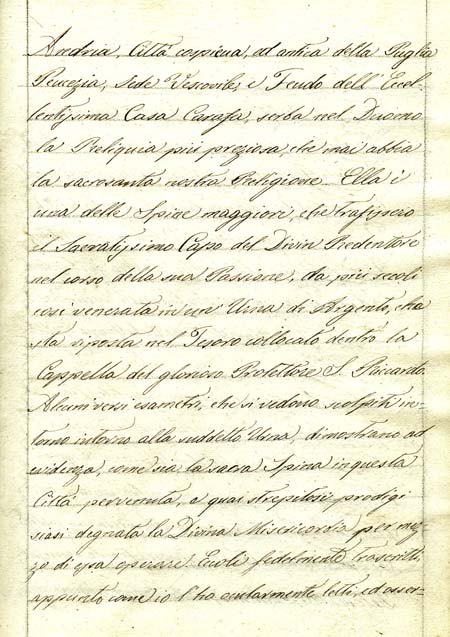 Andria, Città cospicua, ed antica della Puglia
Peucezia, Sede Vescovile, e Feudo dell' Eccel-
lentissima Casa Carafa, serba nel Duomo
la Reliquia più preziosa, che mai abbia
la sacrosanta nostra Religione. Ella è
una delle Spine maggiori, che trafissero
il Sacratissimo Capo del Divin Redentore
nel corso della sua Passione, da più secoli
così venerata in un' Urna di Argento, che
sta riposta nel Tesoro collocato dentro la
Cappella del glorioso Protettore S. Riccardo.
Alcuni versi esametri, che si vedono scolpiti in-
torno intorno alla suddetta Urna, dimostrano ad
evidenza, come sia la sacra Spina in questa
Città pervenuta, e quai strepitosi prodigi
siasi degnata la Divina Misericordia per mez-
zo di essa operare. Eccoli fedelmente trascritti,
appunto come io l' ho ocularmente letti, ed osser-